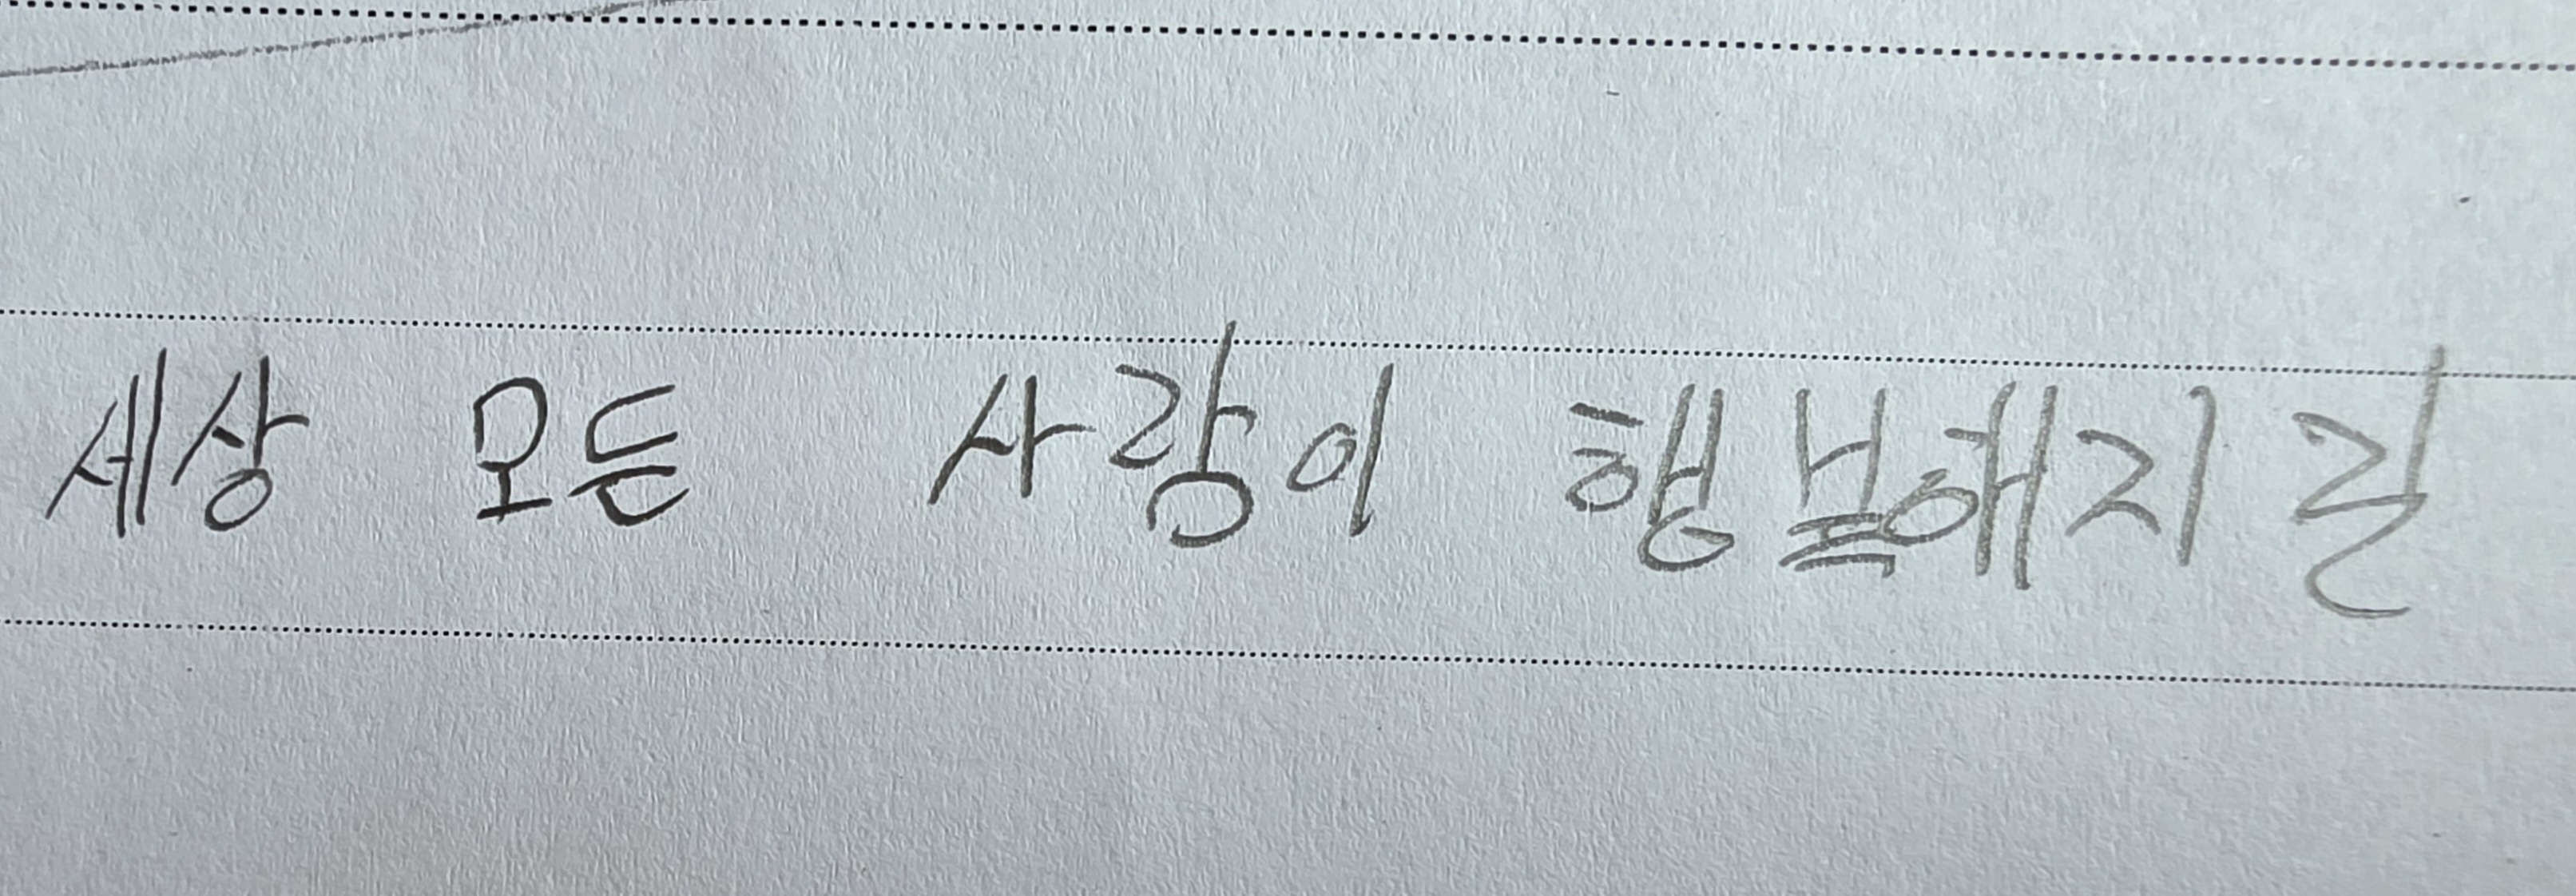 세상 모든 사람이 행복해지길